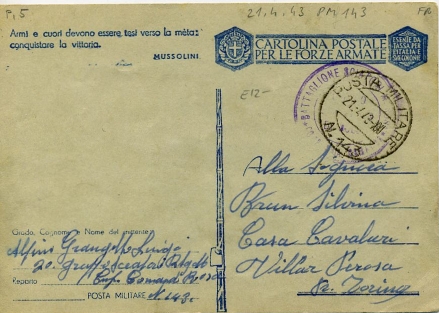 P, 5
21.4.43 PM 143
FR
Armi e cuori devono essere tesi verso la mèta:
conquistare la vittoria.
MUSSOLINI
CARTOLINA POSTALE
PER LE FORZE ARMATE
ESENTE DA
TASSA PER
L'ITALIA E
SUE COLONIE
E12-
BATTAGLIONE
POSTA MILITARE
N. 143
Alla Signora
Brun Silvina
Casa Cavaluri
Villar Perosa
Pr. Torino
Grado, Cognome e Nome del mittente
Alpino Luigi
20.
Reparto
POSTA MILITARE N. 143.